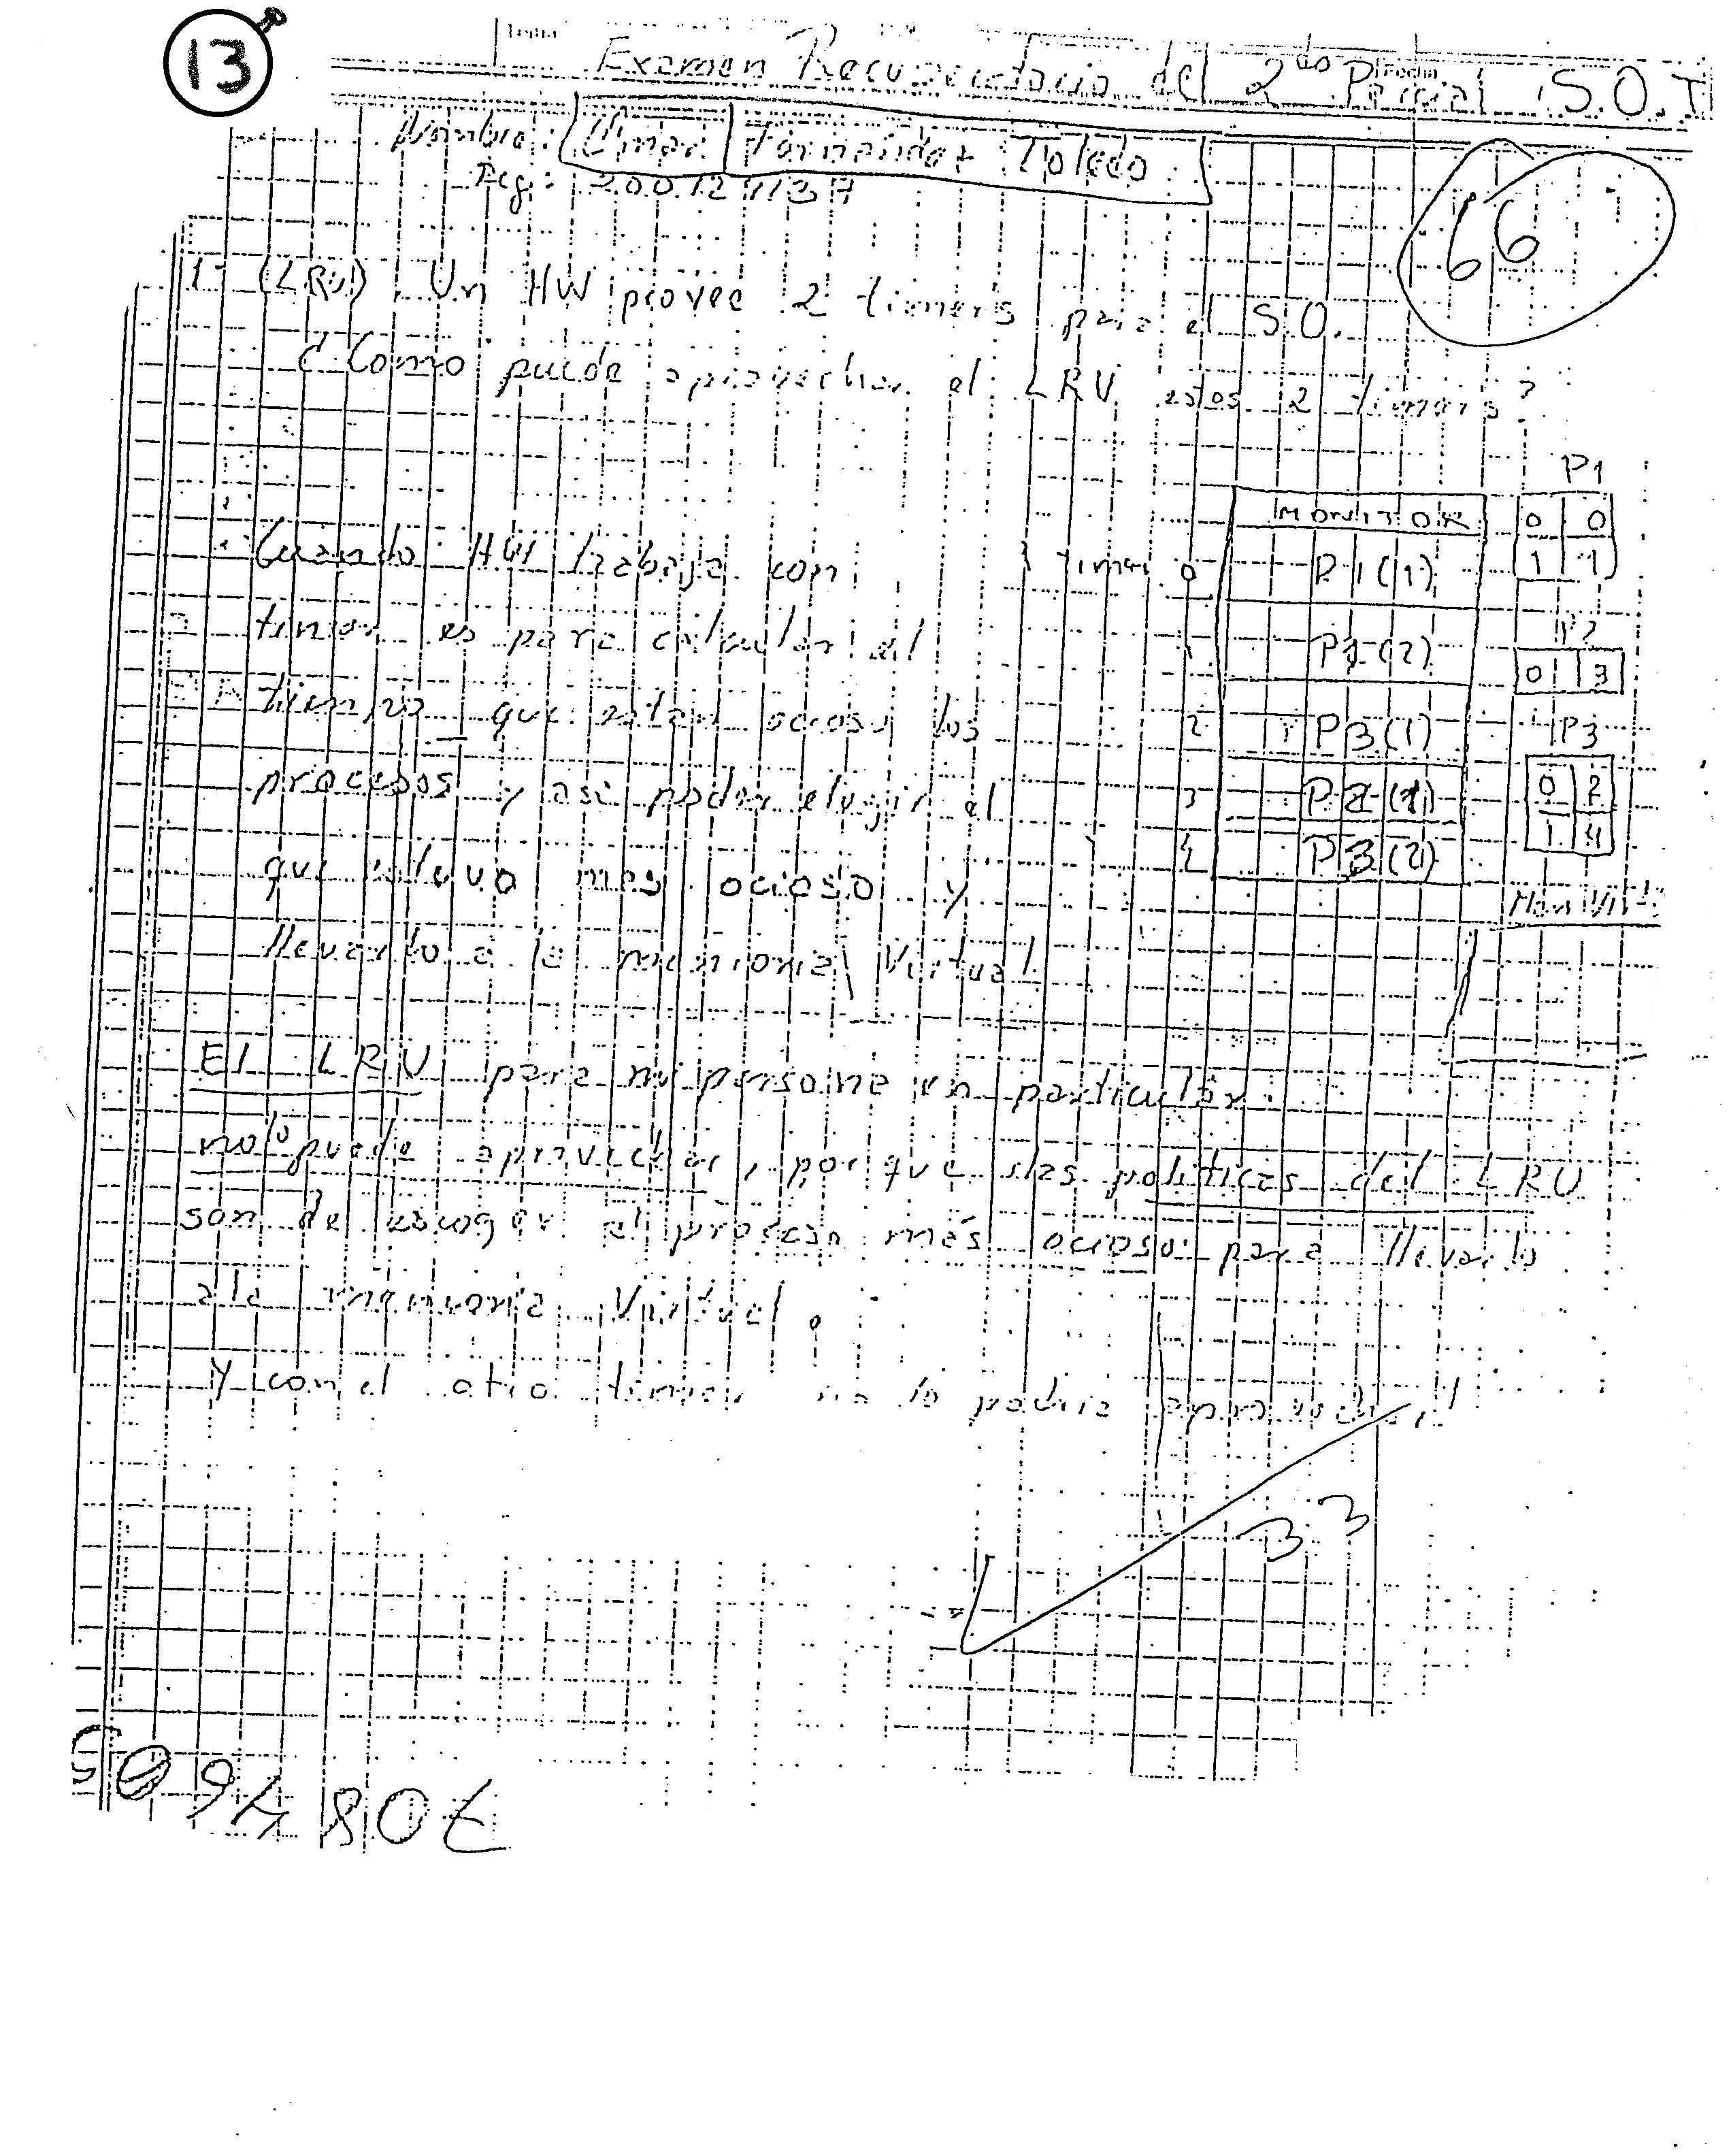 13
Tema
Fecha
Examen Recuperatorio del 2do Parcial S.O.I
Nombre: Omar Fernández Toledo
Reg: 200127137
66
1- (LRU) Un HW provee 2 timers para el S.O.
¿Como puede aprovechar el LRU estos 2 timers?
Cuando HW trabaja con
timer es para calcular el
tiempo que estan ociosos los
procesos y asi poder elegir el
que estuvo mas ocioso y
llevarlo a la memoria Virtual.
timer
MONITOR
0 P1(1)
1 P1(2)
2 P3(1)
3 P2(1)
4 P3(2)
P1
0 0
1 1
P2
0 3
P3
0 2
1 4
El LRU para mi persona en particular
no lo puede aprovechar, porque las politicas del LRU
son de escoger el proceso más ocioso para llevarlo
a la memoria Virtual.
Y con el otro timer no lo podria aprovechar
33